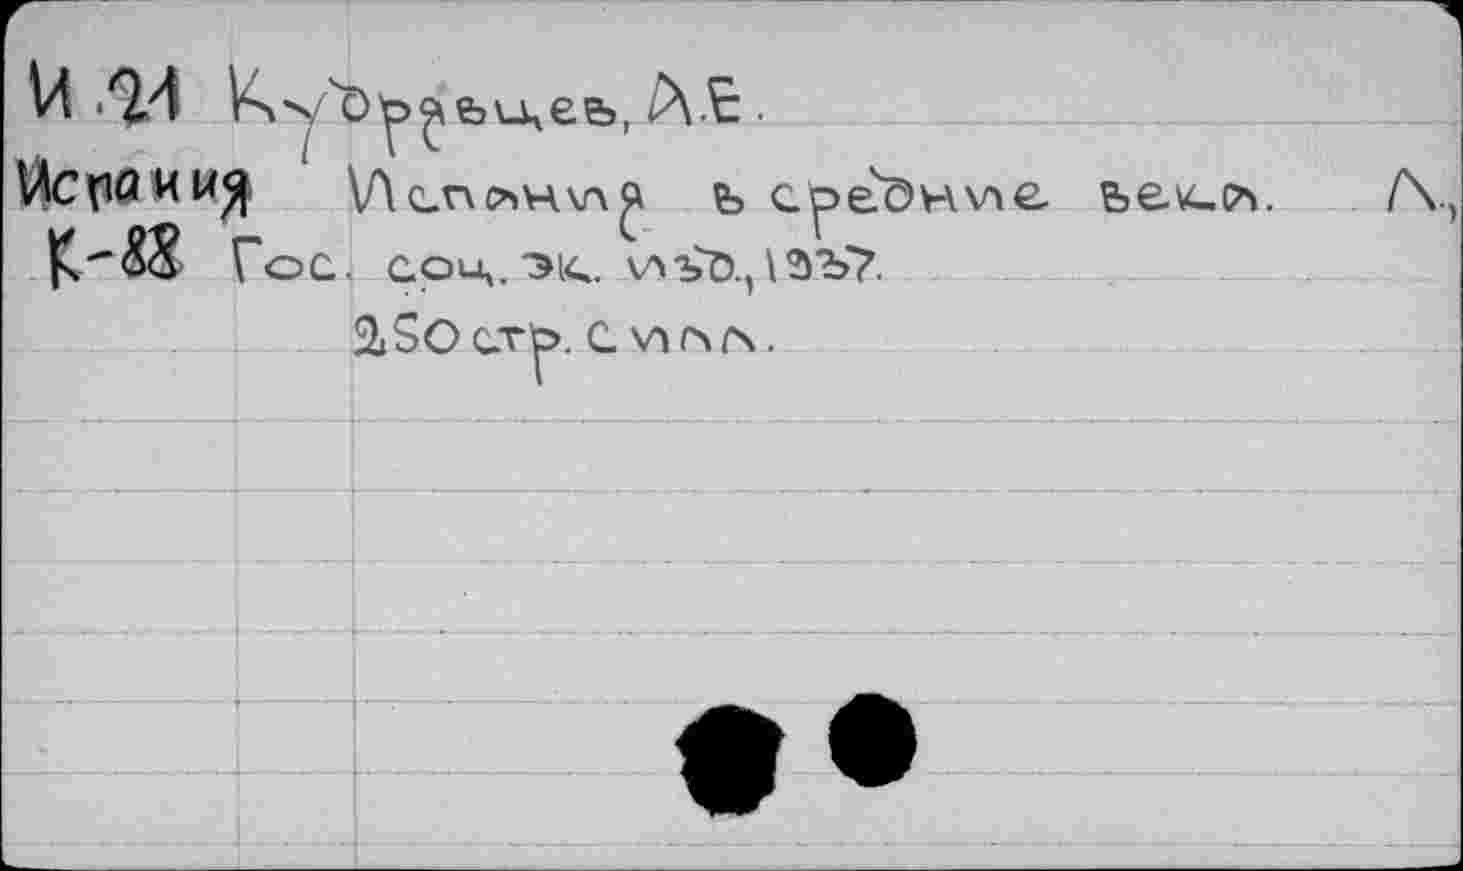 И.21 Кудрявцев, А.Е.
Испания Испания в средние века. Л.,
К-88 Гос. соц. эк. изд., 1937.
250 стр. с илл.